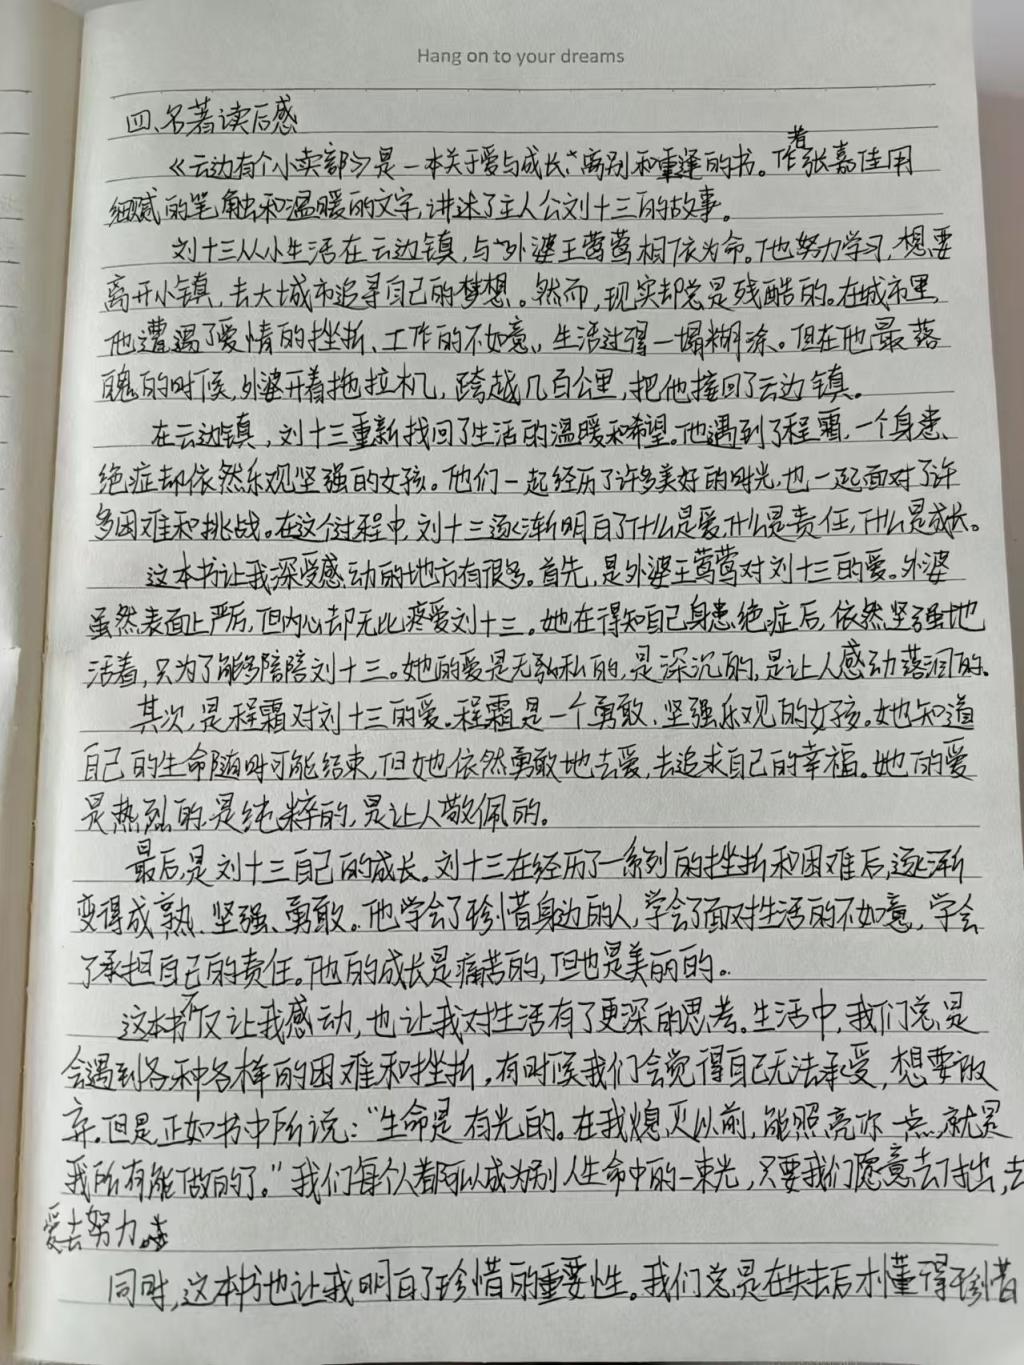 Hang on to your dreams
四、名著读后感
《云边有个小卖部》是一本关于爱与成长、离别和重逢的书。作者张嘉佳用
细腻的笔触和温暖的文字,讲述了主人公刘十三的故事。
刘十三从小生活在云边镇,与外婆王莺莺相依为命。他努力学习,想要
离开小镇,去大城市追寻自己的梦想。然而,现实却总是残酷的。在城市里,
他遭遇了爱情的挫折、工作的不如意,生活过得一塌糊涂。但在他最落
魄的时候,外婆开着拖拉机,跨越几百公里,把他接回了云边镇。
在云边镇,刘十三重新找回了生活的温暖和希望。他遇到了程霜,一个身患
绝症却依然乐观坚强的女孩。他们一起经历了许多美好的时光,也一起面对了许
多困难和挑战。在这个过程中,刘十三逐渐明白了什么是爱,什么是责任,什么是成长。
这本书让我深受感动的地方有很多。首先,是外婆王莺莺对刘十三的爱。外婆
虽然表面上严厉,但内心却无比疼爱刘十三。她在得知自己身患绝症后,依然坚强地
活着,只为了能多陪陪刘十三。她的爱是无私的,是深沉的,是让人感动落泪的。
其次,是程霜对刘十三的爱。程霜是一个勇敢、坚强乐观的女孩。她知道
自己的生命随时可能结束,但她依然勇敢地去爱,去追求自己的幸福。她的爱
是热烈的,是纯粹的,是让人敬佩的。
最后,是刘十三自己的成长。刘十三在经历了一系列的挫折和困难后,逐渐
变得成熟、坚强、勇敢。他学会了珍惜身边的人,学会了面对生活的不如意,学会
了承担自己的责任。他的成长是痛苦的,但也是美丽的。
这本书不仅让我感动,也让我对生活有了更深的思考。生活中,我们总是
会遇到各种各样的困难和挫折,有时候我们会觉得自己无法承受,想要放
弃。但是,正如书中所说:“生命是有光的。在我熄灭以前,能照亮你一点,就是
我所有能做的了。”我们每个人都可以成为别人生命中的一束光,只要我们愿意去付出,去
爱去努力。
同时,这本书也让我明白了珍惜的重要性。我们总是在失去后才懂得珍惜